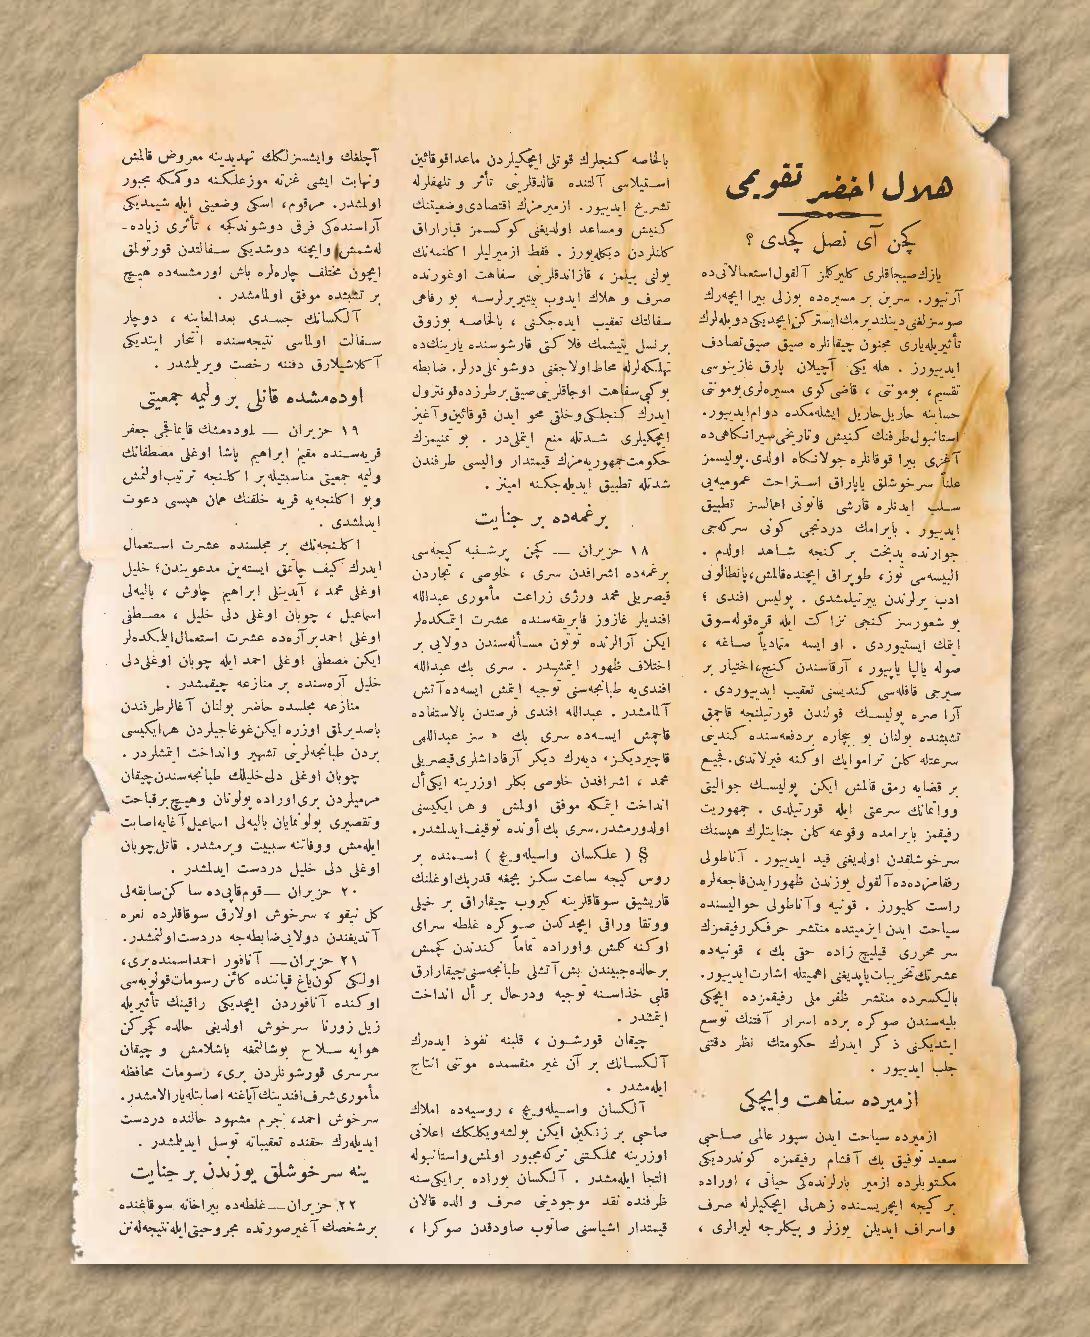 هلال اخضر تقویمی
کچن آی نصل کچدی ؟
یازك صیجاقلری کلیرکلمز آلقول استعمالاتی ده
آرتیور. سرین بر مسیره‌ده بوزلی بیرا ایچه‌رك
صوسزلغنی دیندیرمك ایسترکن ایچدیکی دوبله‌لرك
تأثیریله یاری مجنون چیقانلره صیق صیق تصادف
ایدییورز . هله یکی آچیلان پارق غازینوسی
تقسیم، بومونتی ، قاضی کوی مسیره‌لری بومونتی
حسابنه حاریل حاریل ایشله‌مکده دوام ایدییور.
استانبول طرفنك کنیش و تاریخی سیرانکاهی ده
آغزی بیرا قوقانلره جولانکاه اولدی. پولیسمز
علناً سرخوشلق یاپاراق استراحت عمومیه‌یی
سلب ایدنلره قارشی قانونی اهمالسز تطبیق
ایدییور . بایرامك دردنجی کونی سرکه‌جی
جوارنده بدبخت بر کنجه شاهد اولدم .
البیسه‌سی توز، طوپراق ایچنده قالمش، پانطالونی
ادب یرلرندن ییرتیلمشدی . پولیس افندی ؛
بو شعورسز کنجی نزاکت ایله قره‌قوله سوق
ایتمك ایستیوردی . او ایسه متمادیاً صاغه ،
صوله یالپا یاپیور ، آرقاسندن کنج، اختیار بر
سیرجی قافله‌سی کندیسنی تعقیب ایدییوردی .
آرا صره پولیسك قولندن قورتیلنجه قاچمق
تشبثنده بولنان بو بیچاره بر دفعه‌سنده کندینی
سرعتله کلن تراموایك اوکنه فیرلاتدی. فجیع
بر قضایه رمق قالمش ایکن پولیسك جوالیتی
و واتمانك سرعتی ایله قورتیلدی . جمهوریت
رفیقمز بایرامده وقوعه کلن جنایتلرك هپسنك
سرخوشلقدن اولدیغنی قید ایدییور . آناطولی
رفقامزده‌ده آلقول یوزندن ظهور ایدن فاجعه‌لره
راست کلیورز . قونیه و آناطولی حوالیسنده
سیاحت ایدن ازمیتده منتشر حرفکر رفیقمزك
سر محرری قیلیچ زاده حقی بك ، قونیه‌ده
عشرتك تخریبات یاپدیغنی اهمیتله اشارت ایدییور.
بالیکسرده منتشر ظفر ملی رفیقمزده ایچکی
بلیه‌سندن صوکره برده اسرار آفتنك توسع
ایتدیکنی ذکر ایدرك حکومتك نظر دقتنی
جلب ایدییور .
ازمیرده سفاهت وایچکی
ازمیرده سیاحت ایدن سپور عالمی صاحبی
سعید توفیق بك آقشام رفیقمزه کوندردیکی
مکتوبلرده ازمیر بارلرنده‌کی حیاتی ، اوراده
بر کیجه ایچریسنده زهرلی ایچکیلرله صرف
واسراف ایدیلن یوزلر و بیکلرجه لیرالری ،
بالخاصه کنجلرك قوتلی ایچکیلردن ماعدا قوقائین
استیلاسی آلتنده قالدقلرینی تأثر و تلهفلرله
تشریح ایدییور. ازمیرمزك اقتصادی وضعیتنك
کنیش ومساعد اولدیغنی کوکسمز قباراراق
کلنلردن دیکله‌یورز . فقط ازمیرلیلر اکلنمه‌نك
یولنی بیلمز ، قازاندقلرینی سفاهت اوغورنده
صرف و هلاك ایدوب بیتیریرلرسه بو رفاهی
سفالتك تعقیب ایده‌جکنی ، بالخاصه بوزوق
بر نسل یتیشمك فلاکتی قارشوسنده یارینك ده
تهلکه‌لرله محاط اولاجغنی دوشونملی درلر. ضابطه
بوکبی سفاهت اوجاقلرینی صیقی بر طرزده قونترول
ایدرك کنجلکی وخلقی محو ایدن قوقائین و آغیر
ایچکیلری شدتله منع ایتملی‌در . بو تمنیمزك
حکومت جمهوریه‌مزك قیمتدار والیسی طرفندن
شدتله تطبیق ایدیله‌جکنه امینز .
برغمه‌ده بر جنایت
۱۸ حزیران — کچن پرشنبه کیجه‌سی
برغمه‌ده اشرافدن سری ، خلوصی ، تجاردن
قیصریلی محمد ورژی زراعت مأموری عبدالله
افندیلر غازوز فابریقه‌سنده عشرت ایتمکده‌لر
ایکن آرالرنده توتون مسأله‌سندن دولایی بر
اختلاف ظهور ایتمشدر . سری بك عبدالله
افندی‌یه طبانجه‌سنی توجیه ایتمش ایسه‌ده آتش
آلمامشدر . عبدالله افندی فرصتدن بالاستفاده
قاچمش ایسه‌ده سری بك « سز عبداللهی
قاچیردیکز » دیه‌رك دیکر آرقاداشلری قیصریلی
محمد ، اشرافدن خلوصی بکلر اوزرینه ایکی أل
انداخت ایتمکه موفق اولمش و هر ایکیسنی
اولدورمشدر. سری بك أونده توقیف ایدلمشدر.
§ ( علکسان واسیله‌ویچ ) اسمنده بر
روس کیجه ساعت سکز بچغه قدر بك اوغلنك
قاریشیق سوقاقلرینه کیروب چیقاراق بر خیلی
ووتقا وراقی ایچدکدن صوکره غلطه سرای
اوکنه کلمش واوراده تماماً کندندن کچمش
بر حالده جیبندن بش آتشلی طبانجه‌سنی چیقارارق
قلبی خذاسنه توجیه ودرحال بر أل انداخت
ایتمشدر .
چیقان قورشون ، قلبنه نفوذ ایده‌رك
آلکسانك بر آن غیر منقسمده موتنی انتاج
ایله‌مشدر .
آلکسان واسیله‌ویچ ، روسیه‌ده املاك
صاحبی بر زنکین ایکن بولشه‌ویکلکك اعلانی
اوزرینه مملکتنی ترکه مجبور اولمش واستانبوله
التجا ایله‌مشدر . آلکسان بوراده بر ایکی سنه
ظرفنده نقد موجودینی صرف و الده قالان
قیمتدار اشیاسنی صاتوب صاودقدن صوکرا ،
آچلغك وایشسزلکك تهدیدینه معروض قالمش
ونهایت ایشی غزته موزعلکنه دوکمکه مجبور
اولمشدر. مرقوم، اسکی وضعیتی ایله شیمدیکی
آراسنده‌کی فرقی دوشوندکجه ، تأثری زیاده-
له‌شمش وایچنه دوشدیکی سفالتدن قورتولمق
ایچون مختلف چاره‌لره باش اورمشسه‌ده هیچ
بر تشبثده موفق اولمامشدر .
آلکسانك جسدی بعدالمعاینه ، دوچار
سفالت اولماسی نتیجه‌سنده انتحار ایتدیکی
آکلاشیلارق دفننه رخصت ویرلمشدر .
اوده‌مشده قانلی بر ولیمه جمعیتی
۱۹ حزیران — اوده‌مشك قایماقجی جعفر
قریه‌سنده مقیم ابراهیم پاشا اوغلی مصطفانك
ولیمه جمعیتی مناسبتیله بر اکلنجه ترتیب اولنمش
وبو اکلنجه‌یه قریه خلقنك همان هپسی دعوت
ایدلمشدی .
اکلنجه‌نك بر مجلسنده عشرت استعمال
ایدرك کیف چاتمق ایسته‌ین مدعویندن؛ خلیل
اوغلی محمد ، آیدینلی ابراهیم چاوش ، بالیه‌لی
اسماعیل ، چوبان اوغلی دلی خلیل ، مصطفی
اوغلی احمد بر آزه‌ده عشرت استعمال ایلمکده‌لر
ایکن مصطفی اوغلی احمد ایله چوبان اوغلی دلی
خلیل آره‌سنده بر منازعه چیقمشدر .
منازعه مجلسده حاضر بولنان آغالر طرفندن
باصدیریلمق اوزره ایکن غوغاجیلردن هر ایکیسی
بردن طبانجه‌لرینی تشهیر وانداخت ایتمشلردر .
چوبان اوغلی دلی خلیلك طبانجه‌سندن چیقان
مرمیلردن بری اوراده بولونان وهیچ بر قباحت
وتقصیری بولونمایان بالیه‌لی اسماعیل آغایه اصابت
ایله‌مش ووفاتنه سببیت ویرمشدر. قاتل چوبان
اوغلی دلی خلیل دردست ایدلمشدر .
۲۰ حزیران — قوم قاپی‌ده ساکن سابقه‌لی
کل نیقو ، سرخوش اولارق سوقاقلرده نعره
آتدیغندن دولایی ضابطه‌جه دردست اولنمشدر.
۲۱ حزیران — آنافور احمد اسمنده بری،
اولکی کون یاغ قپاننده کائن رسومات قولوبه‌سی
اوکنده آنافوردن ایچدیکی راقینك تأثیریله
زیل زورنا سرخوش اولدیغی حالده کچرکن
هوایه سلاح بوشالتمغه باشلامش و چیقان
سرسری قورشونلردن بری، رسومات محافظه
مأموری شرف افندینك آیاغنه اصابتله یارالامشدر.
سرخوش احمد، جرم مشهود حالنده دردست
ایدیله‌رك حقنده تعقیباته توسل ایدیلمشدر .
ینه سرخوشلق یوزندن بر جنایت
۲۲ حزیران — غلطه‌ده بیراخانه سوقاغنده
بر شخصك آغیر صورتده مجروحیتی ایله نتیجه‌له‌نن